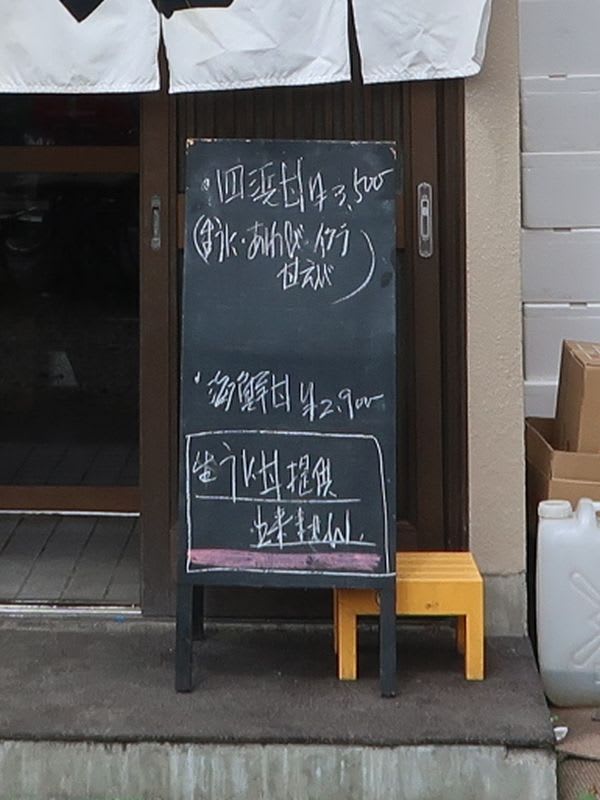 ・四浜丼 ¥3,500
(生うに・あわび・イクラ
甘えび)
・海鮮丼 ¥2,900
生うに丼提供
出来ません。